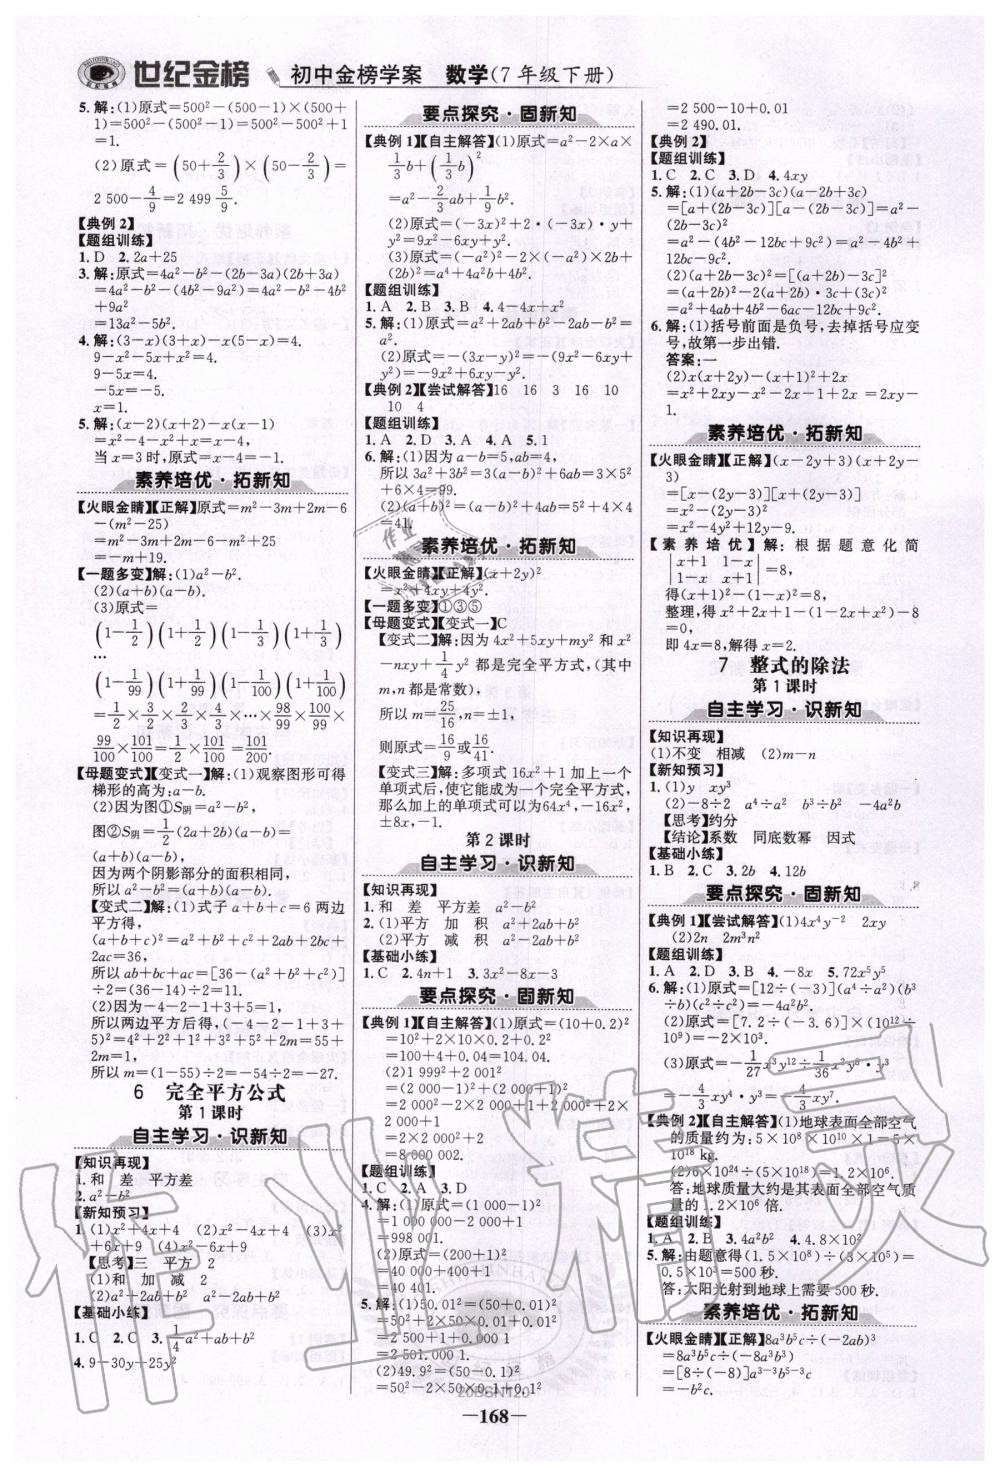 世纪金榜 初中金榜学案 数学(7年级下册)
5.解:(1)原式=500²-(500-1)×(500+
1)=500²-(500²-1)=500²-500²+1
=1.
(2)原式=(50+2/3)×(50-2/3)=
2 500-4/9=2 499 5/9.
【典例2】
【题组训练】
1.D 2.2a+25
3.解:原式=4a²-b²-(2b-3a)(2b+3a)
=4a²-b²-(4b²-9a²)=4a²-b²-4b²
+9a²
=13a²-5b².
4.解:(3-x)(3+x)-x(5-x)=4.
9-x²-5x+x²=4.
9-5x=4.
-5x=-5.
x=1.
5.解:(x-2)(x+2)-x(x-1)
=x²-4-x²+x=x-4,
当x=3时,原式=x-4=-1.
素养培优·拓新知
【火眼金睛】【正解】原式=m²-3m+2m-6
-(m²-25)
=m²-3m+2m-6-m²+25
=-m+19.
【一题多变】解:(1)a²-b².
(2)(a+b)(a-b).
(3)原式=
(1-1/2)(1+1/2)(1-1/3)(1+1/3)
…
(1-1/99)(1+1/99)(1-1/100)(1+1/100)
=1/2×3/2×2/3×4/3×…×98/99×100/99×
99/100×101/100=1/2×101/100=101/200.
【母题变式】【变式一】解:(1)观察图形可得
梯形的高为:a-b.
(2)因为图①S阴=a²-b²,
图②S阴=1/2(2a+2b)(a-b)=
(a+b)(a-b),
因为两个阴影部分的面积相同,
所以a²-b²=(a+b)(a-b).
【变式二】解:(1)式子a+b+c=6两边
平方得,
(a+b+c)²=a²+b²+c²+2ab+2bc+
2ac=36,
所以ab+bc+ac=[36-(a²+b²+c²)]
÷2=(36-14)÷2=11.
(2)因为-4-2-1+3+5=1,
所以两边平方后得,(-4-2-1+3+
5)²=4²+2²+1²+3²+5²+2m=55+
2m=1,
所以m=(1-55)÷2=-54÷2=-27.
6 完全平方公式
第1课时
自主学习·识新知
【知识再现】
1.和 差 平方差
2.a²-b²
【新知预习】
1.(1)x²+4x+4 (2)x²-4x+4 (3)x²
+6x+9 (4)x²-6x+9
【思考】三 平方 2
(1)和 加 减 2
(2)a²+2ab+b² a²-2ab+b²
【基础小练】
1.C 2.C 3.1/4a²+ab+b²
4.9-30y+25y²
要点探究·固新知
【典例1】【自主解答】(1)原式=a²-2×a×
1/3b+(1/3b)²
=a²-2/3ab+1/9b².
(2)原式=(-3x)²+2·(-3x)·y+
y²=9x²-6xy+y².
(3)原式=(-a²)²-2×(-a²)×2b+
(2b)²=a⁴+4a²b+4b².
【题组训练】
1.A 2.B 3.B 4.4-4x+x²
5.解:(1)原式=a²+2ab+b²-2ab-b²=
a².
(2)原式=-(3x-y)²=-(9x²-6xy+
y²)=-9x²+6xy-y².
【典例2】【尝试解答】16 16 3 16 10
10 4
【题组训练】
1.A 2.D 3.A 4.A 5.1
6.解:(1)因为a-b=5,ab=4,
所以3a²+3b²=3(a-b)²+6ab=3×5²
+6×4=99.
(2)(a+b)²=(a-b)²+4ab=5²+4×4
=41.
素养培优·拓新知
【火眼金睛】【正解】(x+2y)²
=x²+4xy+4y².
【一题多变】①③⑤
【母题变式】【变式一】C
【变式二】解:因为4x²+5xy+my²和x²
-nxy+1/4y²都是完全平方式,(其中
m,n都是常数),
所以m=25/16,n=±1,
则原式=16/9或-16/41.
【变式三】解:多项式16x²+1加上一个
单项式后,使它能成为一个完全平方式,
那么加上的单项式可以为64x⁴,-16x²,
±8x,-1.
第2课时
自主学习·识新知
【知识再现】
1.和 差 平方差 a²-b²
2.(1)平方 加 积 a²+2ab+b²
(2)平方 减 积 a²-2ab+b²
【基础小练】
1.C 2.4n+1 3.3x²-8x-3
要点探究·固新知
【典例1】【自主解答】(1)原式=(10+0.2)²
=10²+2×10×0.2+0.2²
=100+4+0.04=104.04.
(2)1 999²+2 001²
=(2 000-1)²+(2 000+1)²
=2 000²-2×2 000×1+1²+2 000²
+2×2 000×1+1²
=2×2 000²+2
=8 000 002.
【题组训练】
1.C 2.A 3.D
4.解:(1)原式=(1 000-1)²
=1 000 000-2 000+1
=998 001.
(2)原式=(200+1)²
=40 000+400+1
=40 401.
5.解:(1)50.01²=(50+0.01)²
=50²+2×50×0.01+0.01²
=2 500+1+0.000 1
=2 501.000 1.
(2)49.9²=(50-0.1)²
=50²-2×50×0.1+0.1²
=2 500-10+0.01
=2 490.01.
【典例2】
【题组训练】
1.C 2.C 3.D 4.4xy
5.解:(1)(a+2b-3c)(a-2b+3c)
=[a+(2b-3c)][a-(2b-3c)]=a²-
(2b-3c)²
=a²-(4b²-12bc+9c²)=a²-4b²+
12bc-9c².
(2)(a+2b-3c)²=[(a+2b)-3c]²
=(a+2b)²-2(a+2b)·3c+(3c)²
=a²+4ab+4b²-6ac-12bc+9c².
6.解:(1)括号前面是负号,去掉括号应变
号,故第一步出错.
答案:一
(2)x(x+2y)-(x+1)²+2x
=x²+2xy-x²-2x-1+2x=2xy-
1.
素养培优·拓新知
【火眼金睛】【正解】(x-2y+3)(x+2y-
3)
=[x-(2y-3)][x+(2y-3)]
=x²-(2y-3)²
=x²-4y²+12y-9.
【素养培优】解:根据题意化简
|x+1 1-x|
|1-x x+1|=8,
得(x+1)²-(1-x)²=8,
整理,得x²+2x+1-(1-2x+x²)-8
=0,
即4x=8,解得x=2.
7 整式的除法
第1课时
自主学习·识新知
【知识再现】
(1)不变 相减 (2)m-n
【新知预习】
1.(1)y xy (3)xy²
(2)-8÷2 a⁴÷a² b³÷b² -4a²b
【思考】约分
【结论】系数 同底数幂 因式
【基础小练】
1.B 2.C 3.2b 4.12b
要点探究·固新知
【典例1】【尝试解答】(1)4x⁴y⁻² 2xy
(2)2n 2m³n²
【题组训练】
1.A 2.D 3.B 4.-8x 5.72x⁵y⁵
6.解:(1)原式=[12÷(-3)](a⁴÷a²)(b³
÷b)(c²÷c)=-4a²b²c.
(2)原式=[7.2÷(-3.6)]×(10¹²÷
10⁹)=-2×10³.
(3)原式=-1/27x³y¹²÷1/36x²y⁸·x³
=-4/3xy⁴·x³=-4/3xy⁷.
【典例2】【自主解答】(1)地球表面全部空气
的质量约为:5×10⁸×10¹⁰×1=5×
10¹⁸ kg.
(2)6×10²⁴÷(5×10¹⁸)=1.2×10⁶.
答:地球质量大约是其表面全部空气质
量的1.2×10⁶倍.
【题组训练】
1.A 2.B 3.4a²b² 4.4.8×10²
5.解:由题意得(1.5×10⁸)÷(3×10⁵)=
0.5×10³=500(秒).
答:太阳光射到地球上需要500秒.
素养培优·拓新知
【火眼金睛】【正解】8a³b⁵c÷(-2ab)³
=8a³b⁵c÷(-8a³b³)
=[8÷(-8)]a³⁻³b⁵⁻³c
=-b²c.
—168—
作业精灵